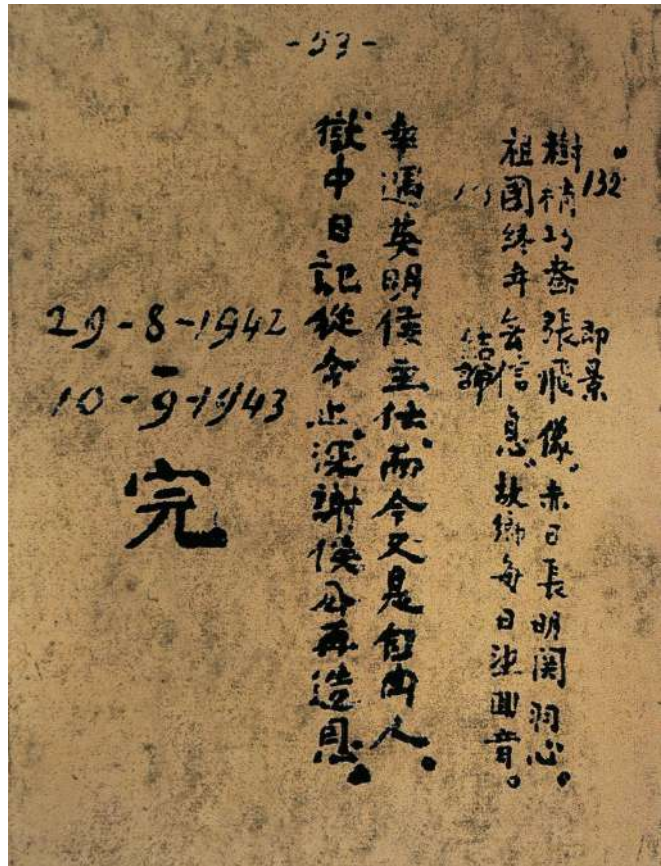 -53-
132
即景
樹梢巧畫張飛像，赤日長明関羽心。
祖國終年無信息，故鄉每日望回音。
結論
幸遇英明侯主任，而今又是自由人。
獄中日記從今止，深謝侯公再造恩。
29-8-1942
-
10-9-1943
完